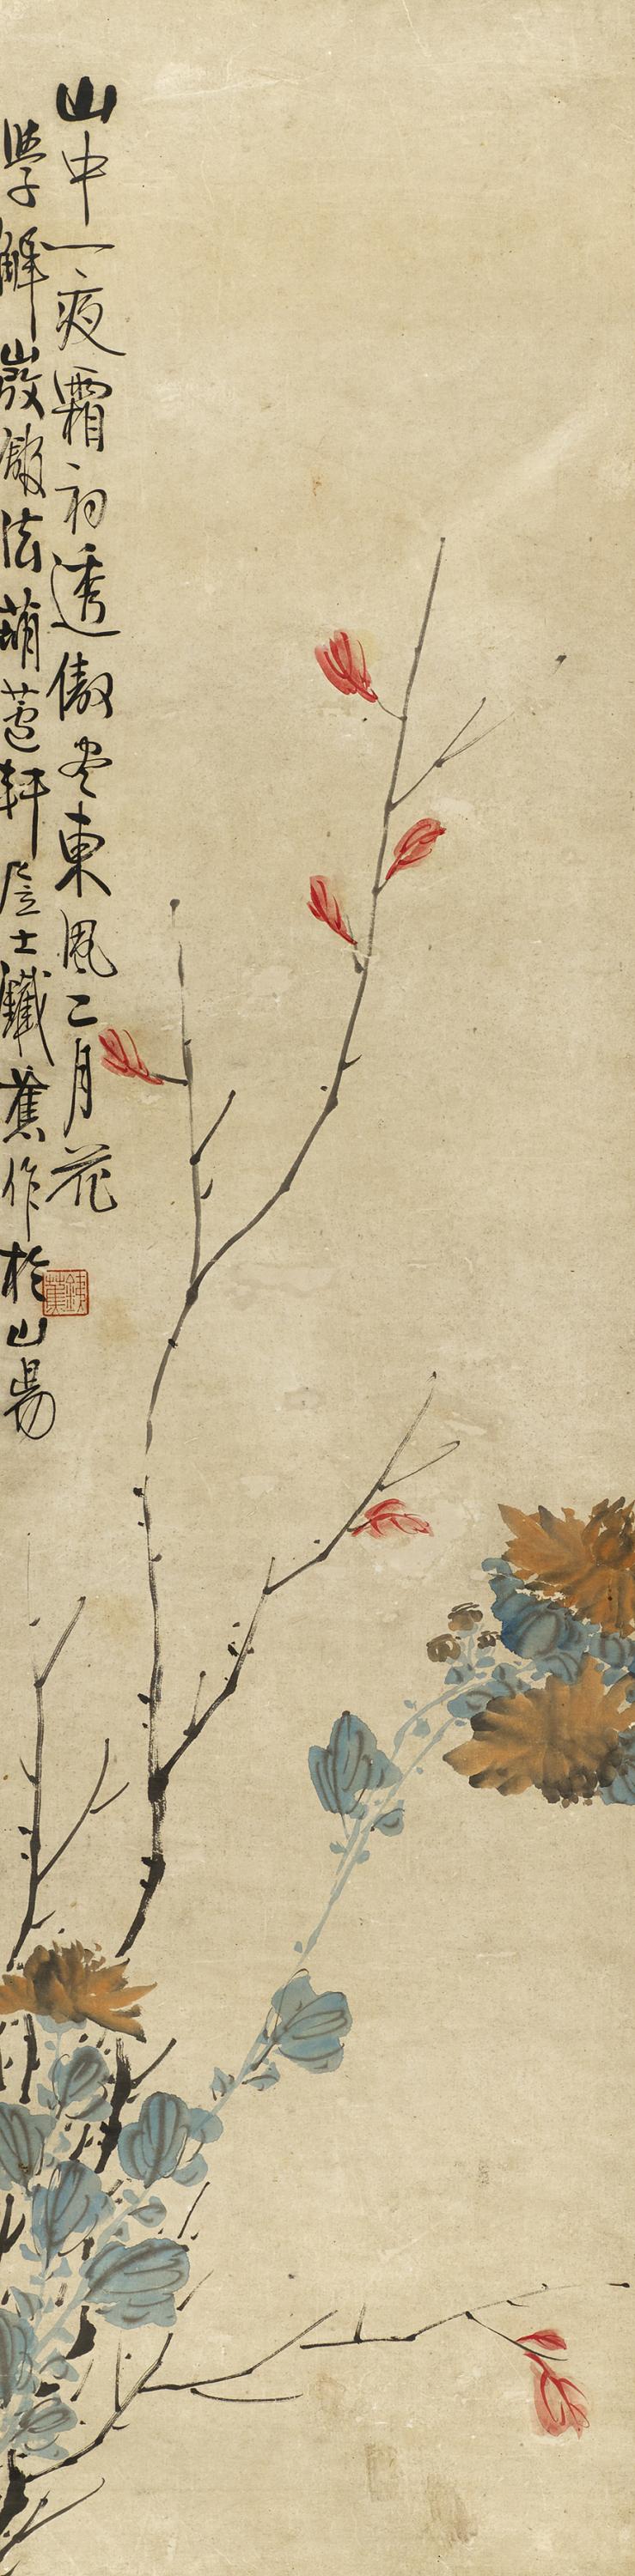 山中一夜霜初透傲尽東風二月花
學解弢館法葫蘆軒詹士鐵蕉作於山陽
鐵蕉